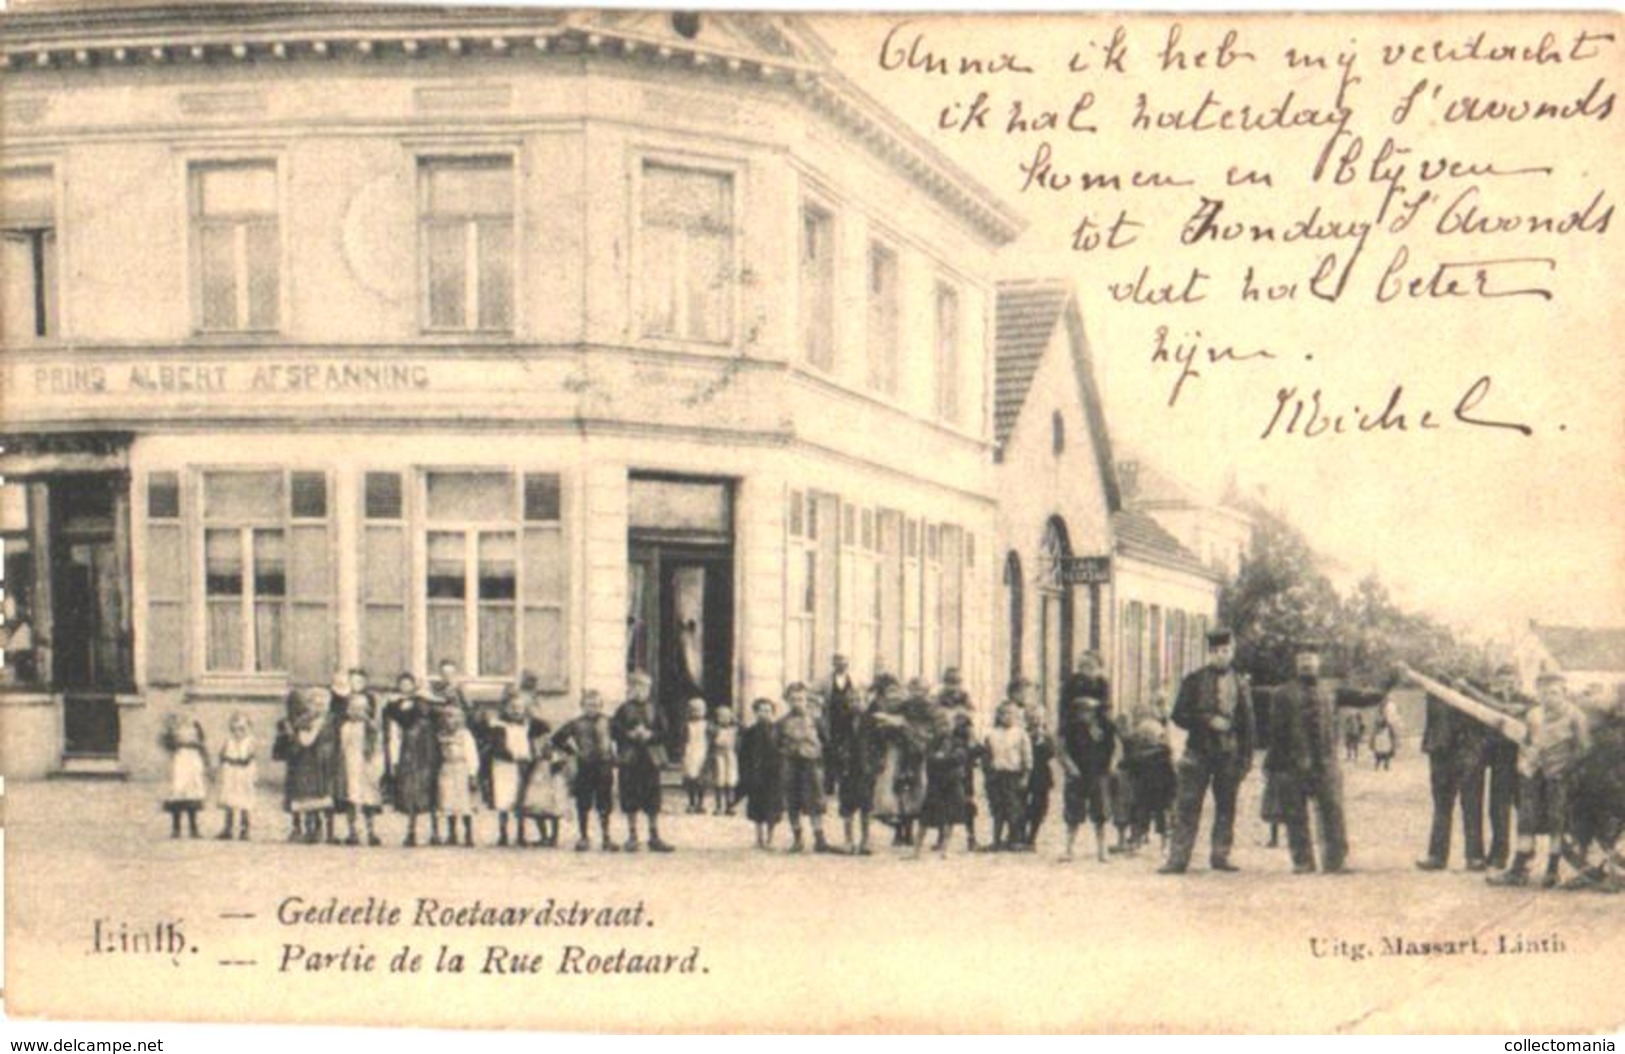 Anna ik heb mij verdacht
ik zal zaterdag S' avonds
komen en blijven
tot Zondag S' Avonds
dat zal beter
zijn.
Michel.
PRINS ALBERT AFSPANNING
Linth. — Gedeelte Roetaardstraat.
— Partie de la Rue Roetaard.
Uitg. Massart, Linth
www.delcampe.net
collectomania